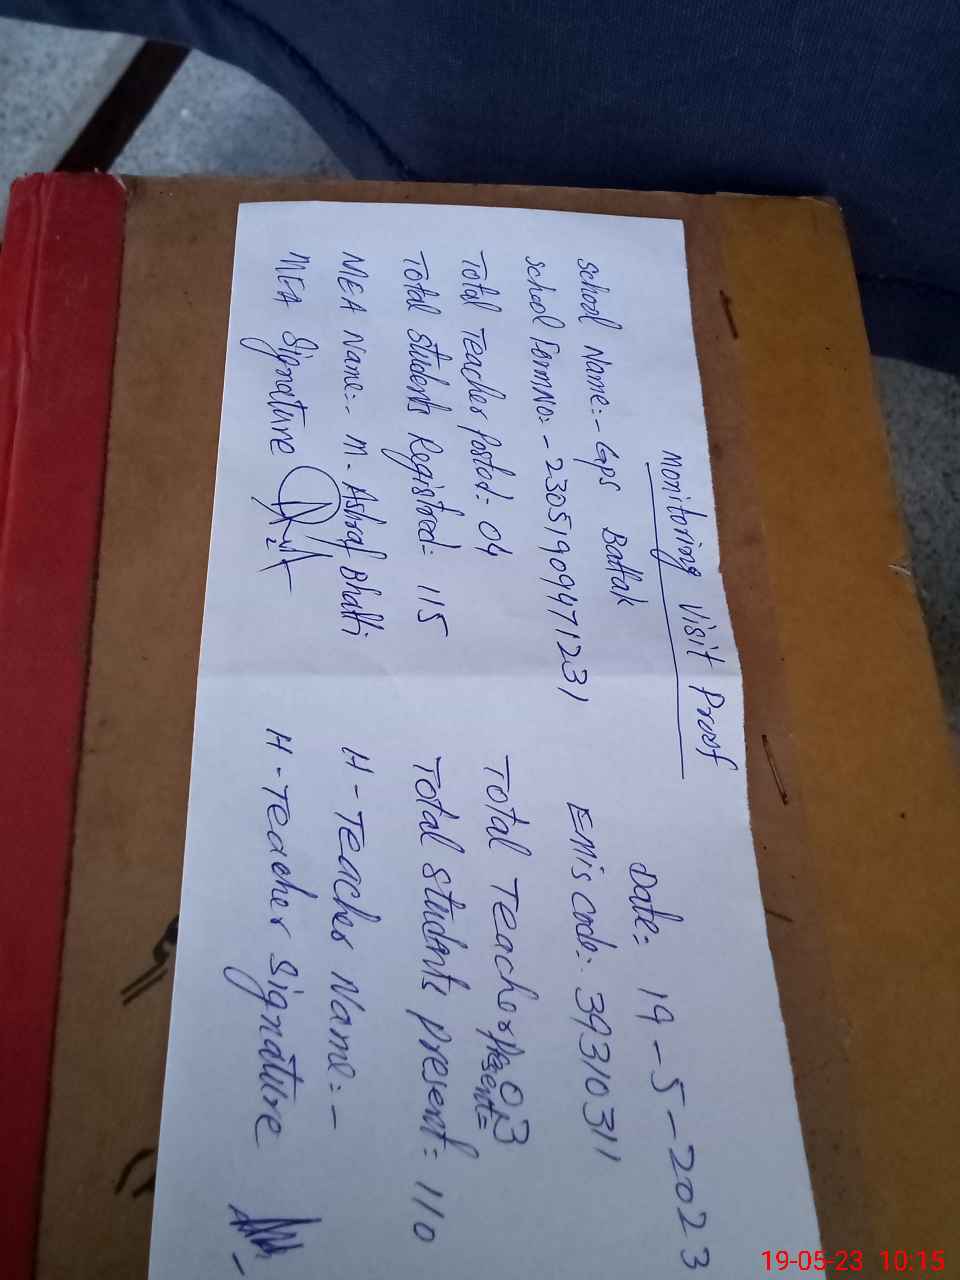 Monitoring Visit Proof
Date:- 19-5-2023
School Name:- Gps Battak
EMis code:- 39310311
School FormNo:- 23051909471231
Total Teacher Posted:- 04
Total Teacher Present= 03
Total Students Registred:- 115
Total Students Present:- 110
MEA Name:- M. Ashraf Bhatti
H-Teacher Name:-
MEA Signature
H-Teacher Signature
19-05-23 10:15